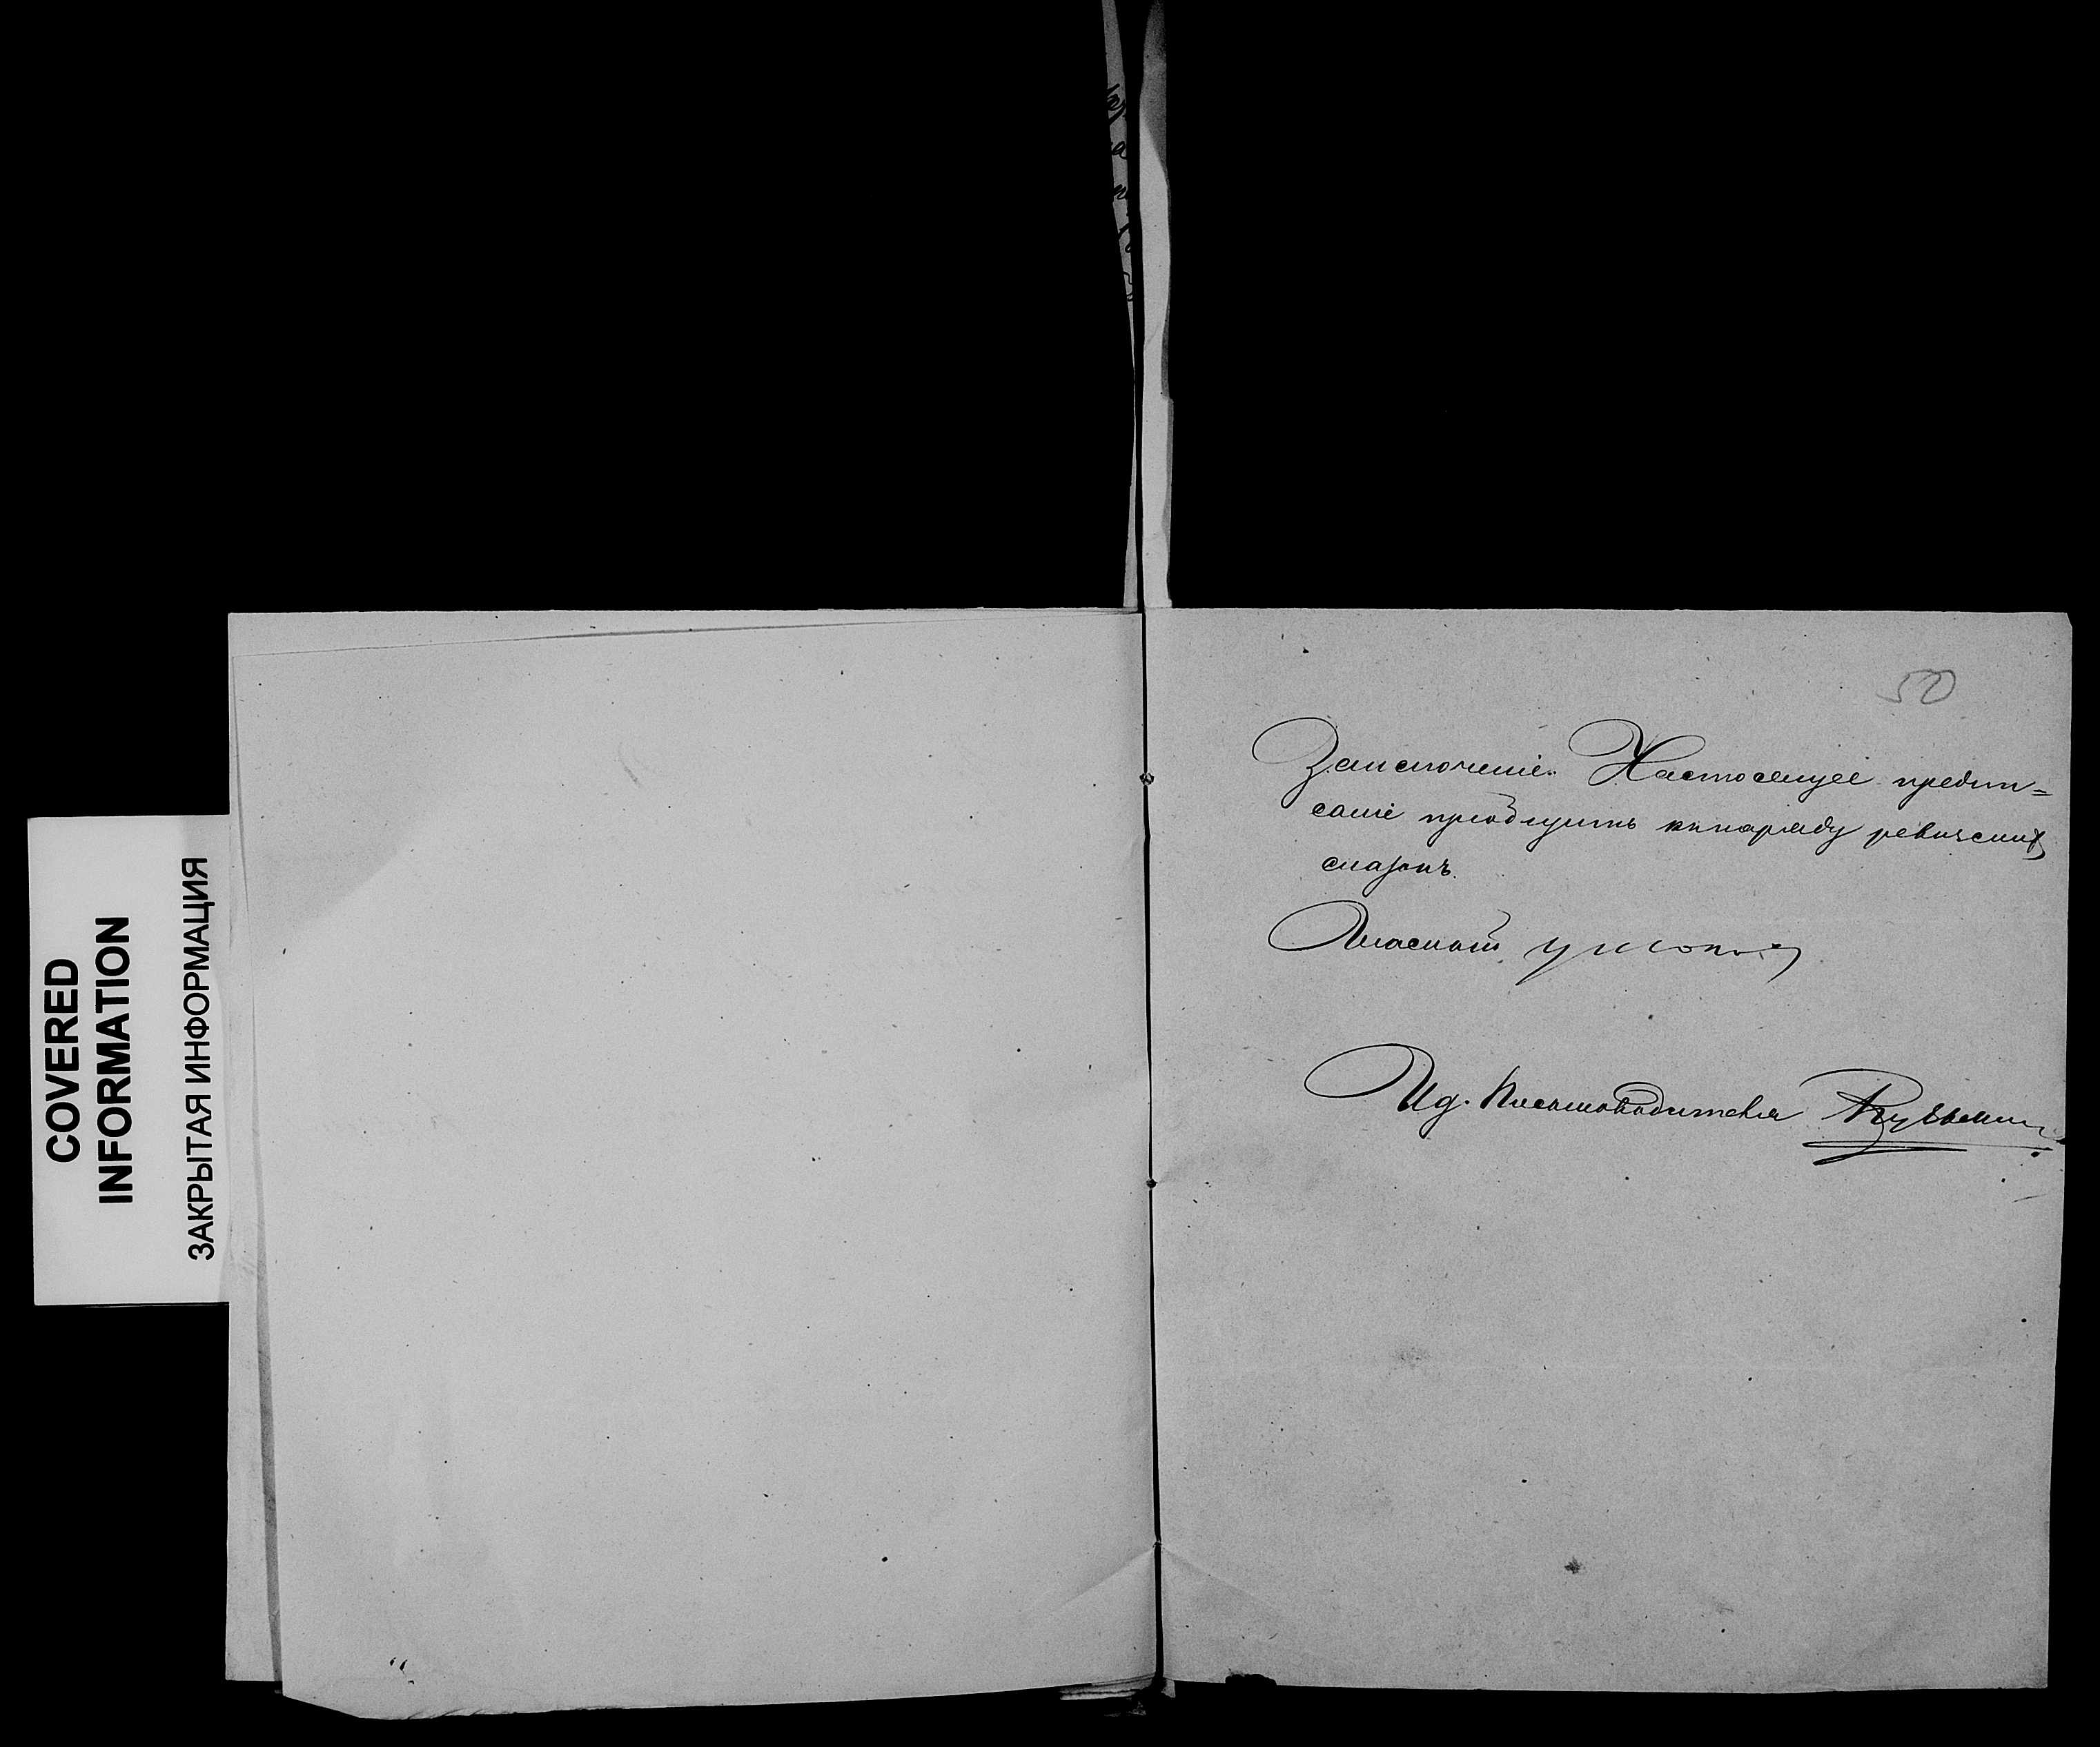 COVERED
INFORMATION
ЗАКРЫТАЯ ИНФОРМАЦИЯ
50
Заключеніе. Настоящее предпи=
саніе приобщить къ наряду ревизскихъ
сказокъ.
Гласный
Ид. Письмоводителя Кузьмин